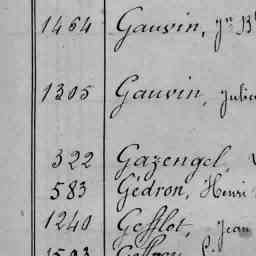 1464 Gauvin, Jn B
1305 Gauvin, Julie
322 Gazengel,
583 Gédron, Henri
1240 Gefflot, Jean